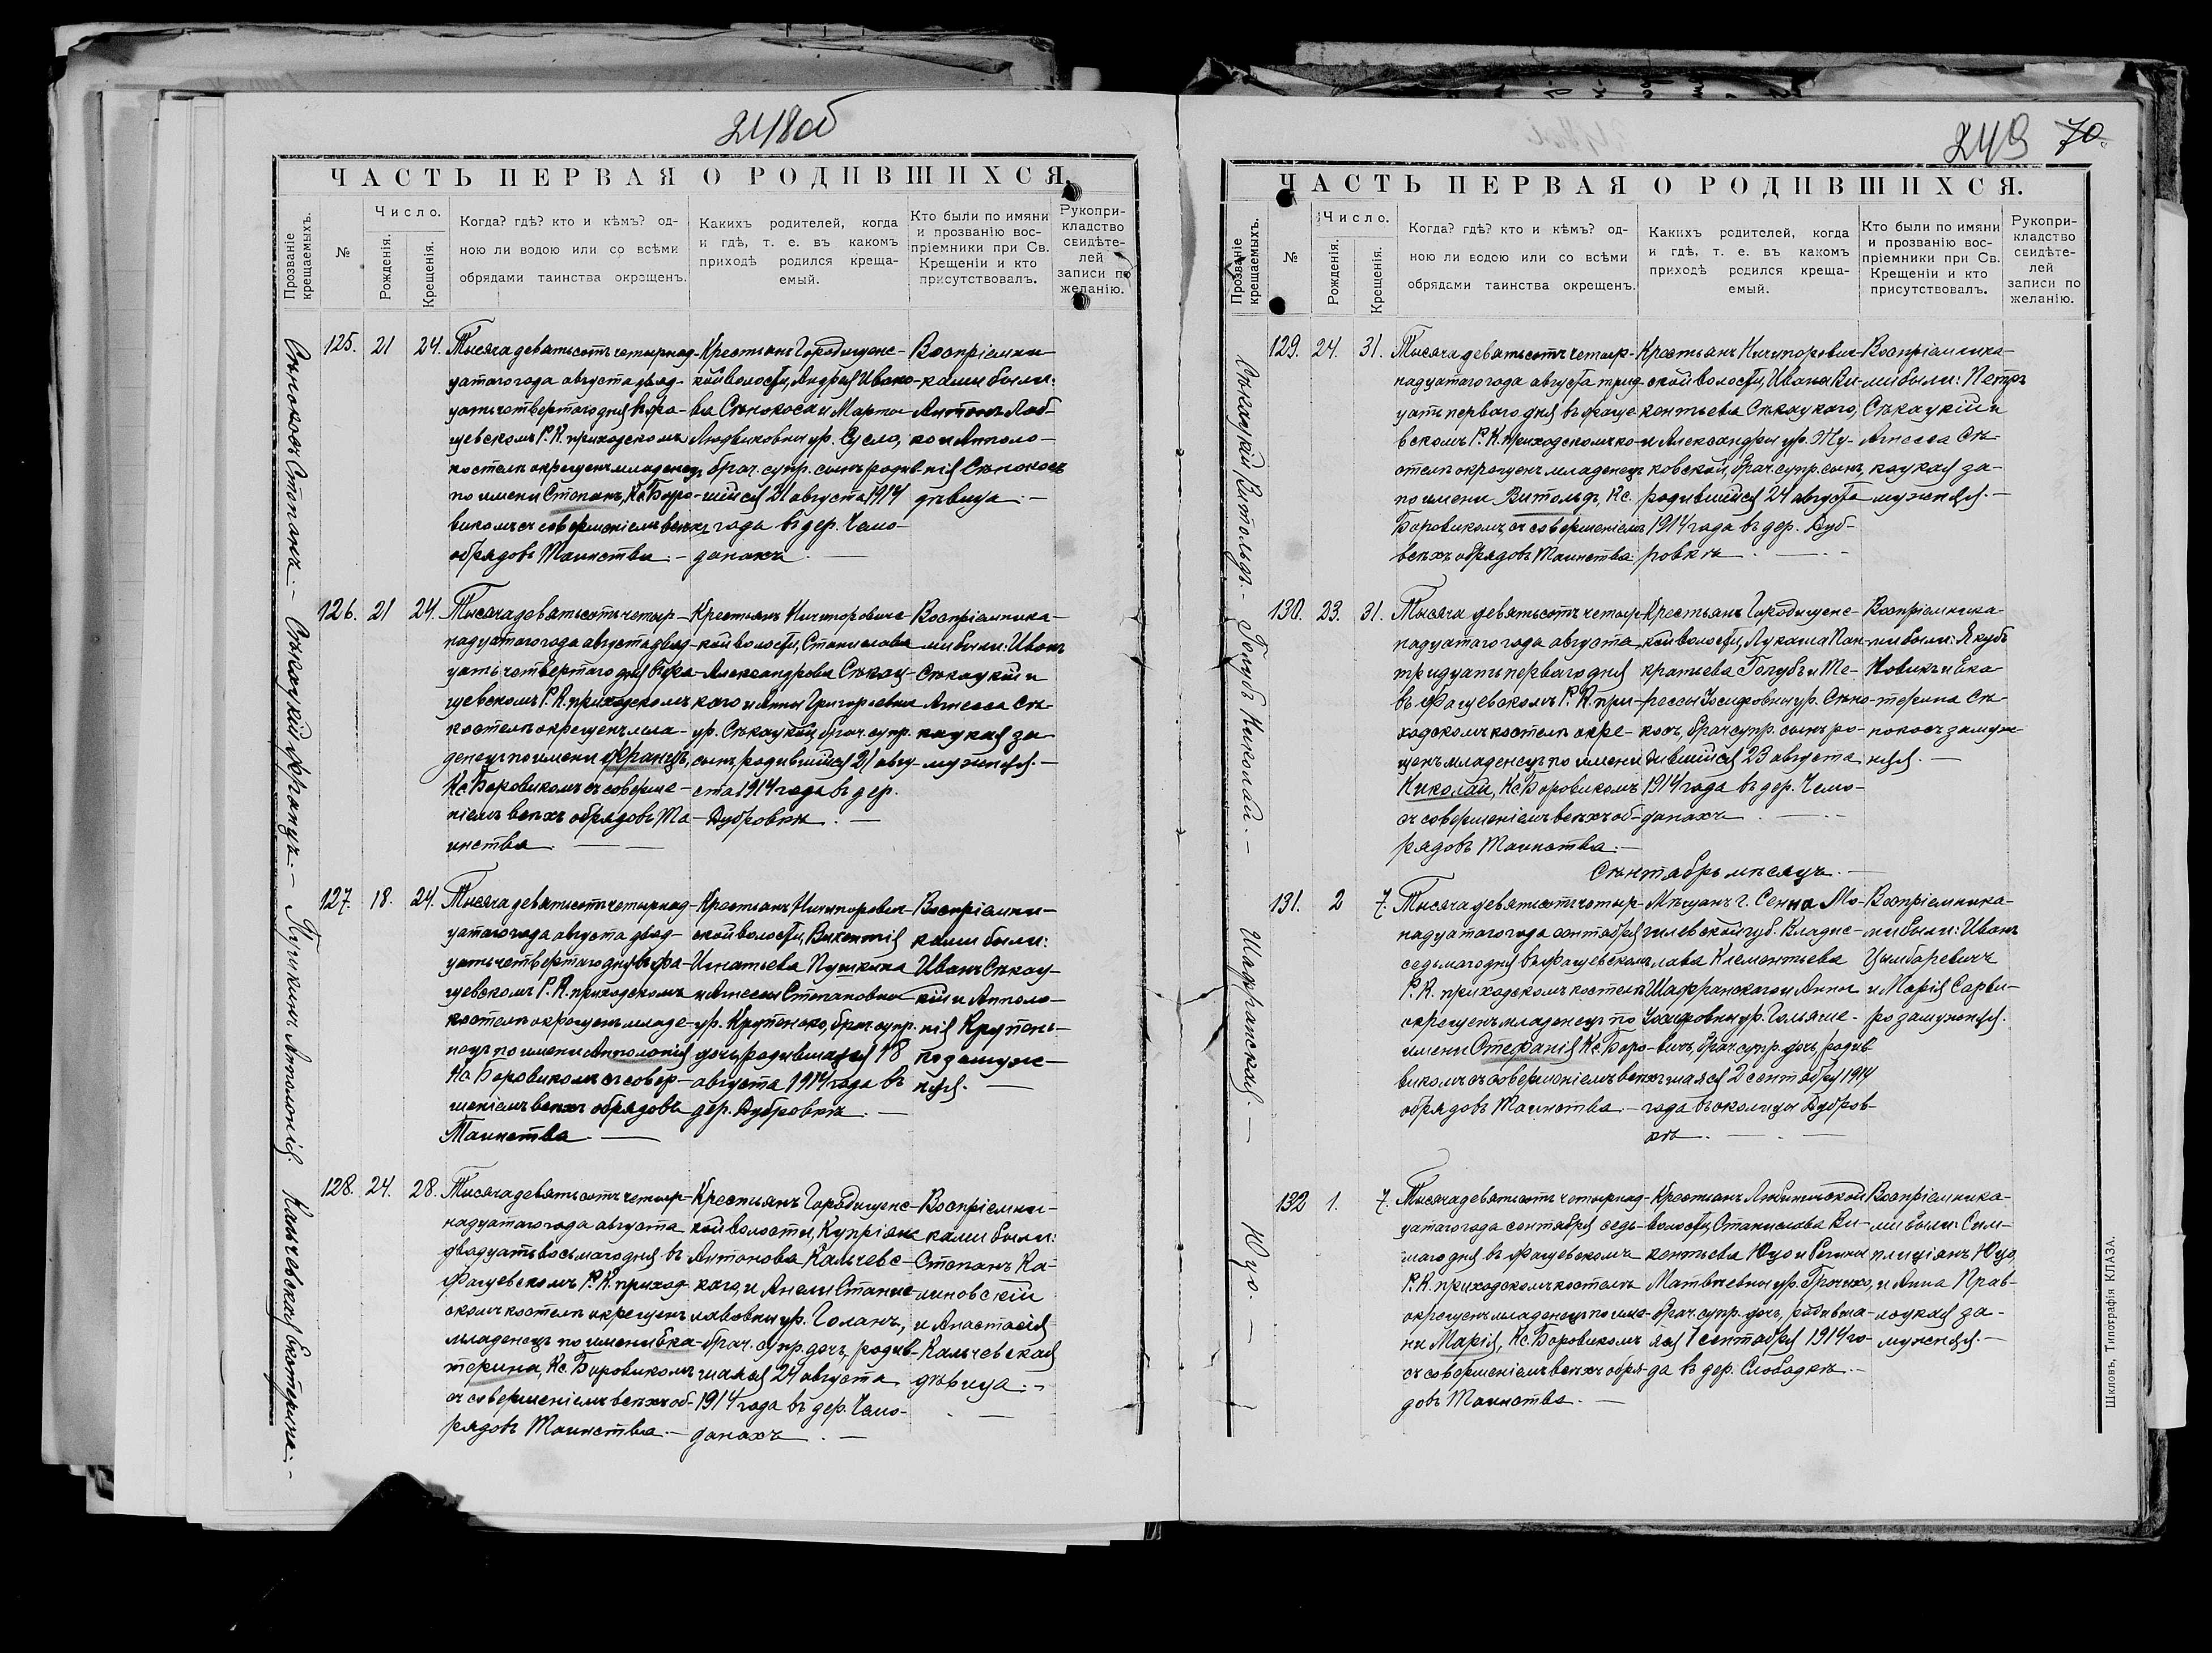 248об
ЧАСТЬ ПЕРВАЯ О РОДИВШИХСЯ.
Прозваніе крещаемыхъ.
№
Число.
Рожденія.
Крещенія.
Когда? гдѣ? кто и кѣмъ? од-
ною ли водою или со всѣми
обрядами таинства окрещенъ.
Какихъ родителей, когда
и гдѣ, т. е. въ какомъ
приходѣ родился креща-
емый.
Кто были по имяни
и прозванію вос-
пріемники при Св.
Крещеніи и кто
присутствовалъ.
Рукопри-
кладство
свидѣте-
лей
записи по
желанію.
Сѣнокосъ Степанъ.-
125. 21 24.
Тысяча девятьсотъ четырнад-
цатаго года августа двад-
цать четвертаго дня въ Фа-
щевскомъ Р. К. приходскомъ
костелѣ окрещенъ младенецъ
по имени Степанъ, Кс. Боро-
викомъ съ совершеніемъ всѣхъ
обрядовъ Таинства.-
Крестьянъ Городищенс-
кой волости, Андрея Ивано-
ва Сѣнокоса и Марты
Людвиковны ур. Сусло,
брач. супр. сынъ, родив-
шійся 21 августа 1914
года въ дер. Чемо-
данахъ.
Воспріемни-
ками были:
Антонъ Лаб-
ко и Апполо-
нія Сѣнокосъ
дѣвица.-
Сѣкацкій Францъ.-
126. 21 24.
Тысяча девятьсотъ четыр-
надцатаго года августа двад-
цать четвертаго дня въ Фа-
щевскомъ Р. К. приходскомъ
костелѣ окрещенъ мла-
денецъ по имени Францъ,
Кс. Боровикомъ съ соверше-
ніемъ всѣхъ обрядовъ Та-
инства.
Крестьянъ Ничипоровичс-
кой волости, Станислава
Александрова Сѣкац-
каго и Анны Григорьевны
ур. Сѣкацкой, брач. супр.
сынъ, родившійся 21 авгу-
ста 1914 года въ дер.
Дубровкѣ.
Воспріемника-
ми были: Иванъ
Сѣкацкій и
Агнесса Сѣ-
кацкая за-
мужняя.-
Пушкина Апполонія.
127. 18. 24.
Тысяча девятьсотъ четырнад-
цатаго года августа двад-
цать четвертаго дня въ Фа-
щевскомъ Р. К. приходскомъ
костелѣ окрещенъ младе-
нецъ по имени Апполонія
Кс. Боровикомъ съ совер-
шеніемъ всѣхъ обрядовъ
Таинства.
Крестьянъ Ничипорович-
ской волости, Викентія
Игнатьева Пушкина
и Агнессы Степановны
ур. Крупенько, брач. супр.
дочь, родившаяся 18
августа 1914 года въ
дер. Дубровкѣ.
Воспріемни-
ками были:
Иванъ Сѣкац-
кій и Апполо-
нія Крупень-
ко замуж-
няя.
Кальчевская Екатерина.-
128. 24. 28.
Тысяча девятьсотъ четыр-
надцатаго года августа
двадцать восьмаго дня въ
Фащевскомъ Р. К. приход-
скомъ костелѣ окрещенъ
младенецъ по имени Ека-
терина, Кс. Боровикомъ
съ совершеніемъ всѣхъ об-
рядовъ Таинства.-
Крестьянъ Городищенс-
кой волости, Купріяна
Антонова Кальчевс-
каго, и Анели Станис-
лавовны ур. Голанъ,
брач. супр. дочь, родив-
шаяся 24 августа
1914 года въ дер. Чемо-
данахъ.
Воспріемни-
ками были:
Степанъ Ка-
линовскій
и Анастасія
Кальчевская
дѣвица.-
249 70.
ЧАСТЬ ПЕРВАЯ О РОДИВШИХСЯ.
Прозваніе крещаемыхъ.
№
Число.
Рожденія.
Крещенія.
Когда? гдѣ? кто и кѣмъ? од-
ною ли водою или со всѣми
обрядами таинства окрещенъ.
Какихъ родителей, когда
и гдѣ, т. е. въ какомъ
приходѣ родился креща-
емый.
Кто были по имяни
и прозванію вос-
пріемники при Св.
Крещеніи и кто
присутствовалъ.
Рукопри-
кладство
свидѣте-
лей
записи по
желанію.
Сѣкацкій Витольдъ.-
129. 24. 31.
Тысяча девятьсотъ четыр-
надцатаго года августа трид-
цать перваго дня въ Фаще-
вскомъ Р. К. приходскомъ ко-
стелѣ окрещенъ младенецъ
по имени Витольдъ, Кс.
Боровикомъ, съ совершеніемъ
всѣхъ обрядовъ Таинства.
Крестьянъ Ничипорович-
ской волости, Ивана Ви-
кентьева Сѣкацкаго,
и Александры ур. Жу-
ковской, брач. супр. сынъ,
родившійся 24 августа
1914 года въ дер. Дуб-
ровкѣ.
Воспріемника-
ми были: Петръ
Сѣкацкій и
Агнесса Сѣ-
кацкая за-
мужняя.-
Голубъ Николай.-
130. 23. 31.
Тысяча девятьсотъ четыр-
надцатаго года августа
тридцать перваго дня
въ Фащевскомъ Р. К. при-
ходскомъ костелѣ окре-
щенъ младенецъ по имени
Николай, Кс. Боровикомъ
съ совершеніемъ всѣхъ об-
рядовъ Таинства.-
Крестьянъ Городищенс-
кой волости, Лукаша Пан-
кратьева Голубъ и Те-
рессы Іосифовны ур. Сѣно-
косъ, брач. супр. сынъ, ро-
дившійся 23 августа
1914 года въ дер. Чемо-
данахъ.
Воспріемника-
ми были: Якубъ
Новикъ и Ека-
терина Сѣ-
нокосъ замуж-
няя.-
Сѣнтябрь мѣсяцъ.-
Шафранская-
131. 2 7.
Тысяча девятьсотъ четыр-
надцатаго года сентября
седьмаго дня въ Фащевскомъ
Р. К. приходскомъ костелѣ
окрещенъ младенецъ по
имени Стефанія Кс. Боро-
викомъ съ совершеніемъ всѣхъ
обрядовъ Таинства.-
Мѣщанъ г. Сенна Мо-
гилевской губ. Владис-
лава Клементьева
Шафранскаго и Анны
Іосифовны ур. Гольяше-
вичъ, брач. супр. дочь, родив-
шаяся 2 сентября 1914
года въ околицы Дубров-
кѣ.
Воспріемника-
ми были: Иванъ
Цымбаревичъ
и Марія Сарви-
ро замужняя.
Юцо.-
132 1. 7.
Тысяча девятьсотъ четырнад-
цатаго года сентября седь-
маго дня въ Фащевскомъ
Р. К. приходскомъ костелѣ
окрещенъ младенецъ по име-
ни Марія, Кс. Боровикомъ
съ совершеніемъ всѣхъ обря-
довъ Таинства.-
Крестьянъ Любиничской
волости, Станислава Ви-
кентьева Юцо и Регины
Матвѣевны ур. Грачихо,
брач. супр. дочь, родивша-
яся 1 сентября 1914 го-
да въ дер. Слободкѣ.-
Воспріемника-
ми были: Сим-
плиціянъ Юцо,
и Анна Прав-
лоцкая за-
мужняя.-
Шкловъ, Типографія КЛАЗА.